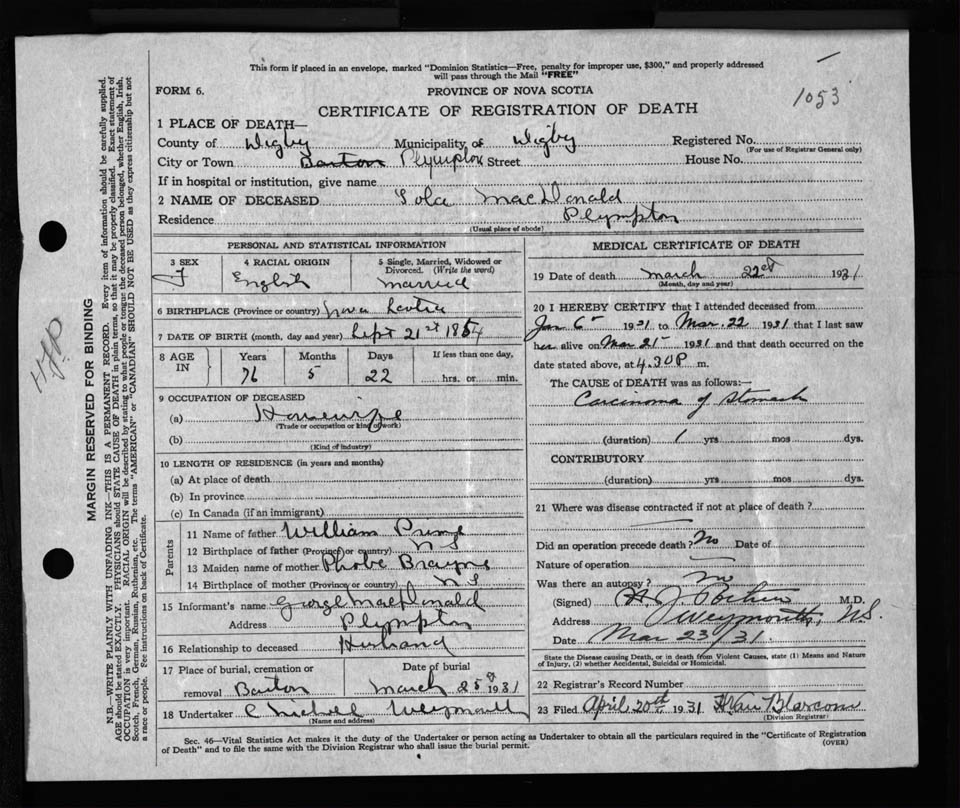 This form if placed in an envelope, marked "Dominion Statistics—Free, penalty for improper use, $300," and properly addressed
will pass through the Mail "FREE"
FORM 6.
PROVINCE OF NOVA SCOTIA
1053
CERTIFICATE OF REGISTRATION OF DEATH
1 PLACE OF DEATH—
County of Digby Municipality of Digby Registered No.
(For use of Registrar General only)
City or Town Barton Plympton Street House No.
If in hospital or institution, give name
2 NAME OF DECEASED MacDonald
Residence Plympton
(Usual place of abode)
PERSONAL AND STATISTICAL INFORMATION
3 SEX 4 RACIAL ORIGIN 5 Single, Married, Widowed or
Divorced. (Write the word)
F English married
6 BIRTHPLACE (Province or country) Nova Scotia
7 DATE OF BIRTH (month, day and year) Sept 21st 1854
8 AGE IN Years Months Days If less than one day,
76 5 22 hrs. or min.
9 OCCUPATION OF DECEASED
(a) Housewife
(Trade or occupation or kind of work)
(b)
(Kind of industry)
10 LENGTH OF RESIDENCE (in years and months)
(a) At place of death
(b) In province
(c) In Canada (if an immigrant)
Parents
11 Name of father William Prime
12 Birthplace of father (Province or country) N S
13 Maiden name of mother Phobe
14 Birthplace of mother (Province or country) N S
15 Informant's name George MacDonald
Address Plympton
16 Relationship to deceased Husband
17 Place of burial, cremation or Date of burial
removal Barton March 25 1931
18 Undertaker Weymouth
(Name and address)
MEDICAL CERTIFICATE OF DEATH
19 Date of death March 22 1931
(Month, day and year)
20 I HEREBY CERTIFY that I attended deceased from
Jan 6 1931 to Mar. 22 1931 that I last saw
her alive on Mar 21 1931 and that death occurred on the
date stated above, at 4.30 P m.
The CAUSE of DEATH was as follows:—
Carcinoma of Stomach
(duration) 1 yrs mos dys.
CONTRIBUTORY
(duration) yrs mos dys.
21 Where was disease contracted if not at place of death?
Did an operation precede death? No Date of
Nature of operation
Was there an autopsy? no
(Signed) M.D.
Address Weymouth, N.S.
Date Mar 23/31
State the Disease causing Death, or in death from Violent Causes, state (1) Means and Nature
of Injury, (2) whether Accidental, Suicidal or Homicidal.
22 Registrar's Record Number
23 Filed April 20th 1931
(Division Registrar)
Sec. 46—Vital Statistics Act makes it the duty of the Undertaker or person acting as Undertaker to obtain all the particulars required in the "Certificate of Registration
of Death" and to file the same with the Division Registrar who shall issue the burial permit. (OVER)
MARGIN RESERVED FOR BINDING
N.B.—WRITE PLAINLY WITH UNFADING INK—THIS IS A PERMANENT RECORD. Every item of information should be carefully supplied.
AGE should be stated EXACTLY. PHYSICIANS should STATE CAUSE OF DEATH in plain terms, so that it may be properly classified. Exact statement of
OCCUPATION is very important. RACIAL ORIGIN will be described by stating to what people or tongue the deceased person belonged, whether English, Irish,
Scotch, French, German, Russian, Ruthenian, etc. The terms "AMERICAN" or "CANADIAN" SHOULD NOT BE USED as they express citizenship but not
a race or people. See instructions on back of Certificate.